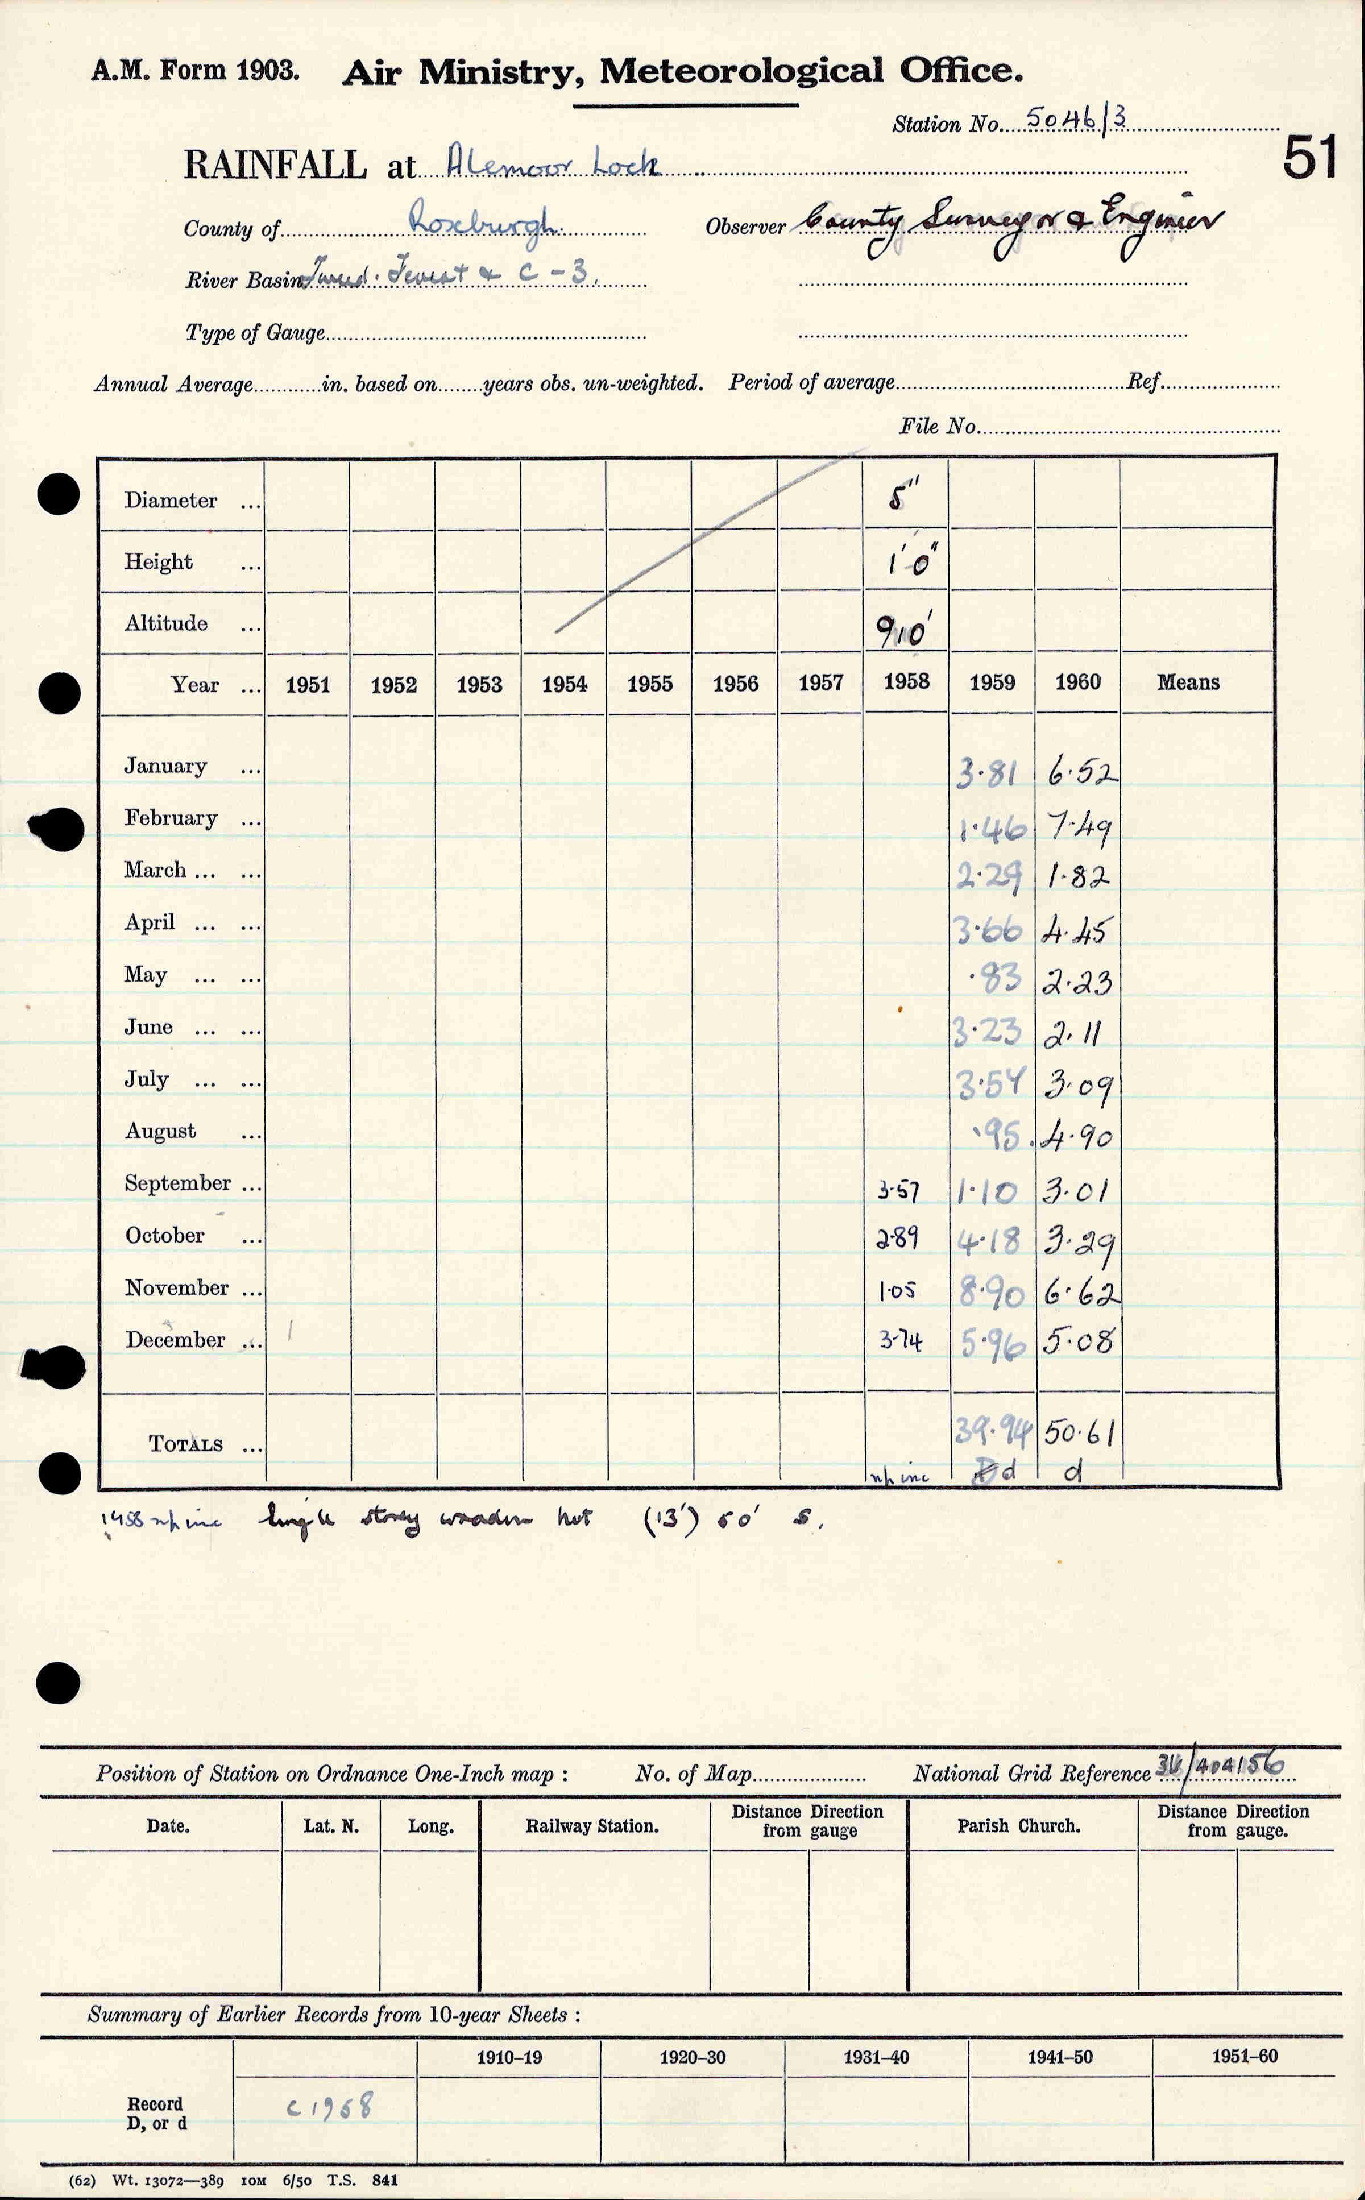 A.M. Form 1903. Air Ministry, Meteorological Office.
Station No. 5046/3
51
RAINFALL at Alemoor Loch
County of Roxburgh. Observer County Surveyor & Engineer
River Basin Tweed. Teviot & C - 3.
Type of Gauge
Annual Average in. based on years obs. un-weighted. Period of average Ref.
File No.
Diameter ... 5"
Height ... 1'0"
Altitude ... 910'
Year ... 1951 1952 1953 1954 1955 1956 1957 1958 1959 1960 Means
January ... 3.81 6.52
February ... 1.46 7.49
March ... ... 2.29 1.82
April ... ... 3.66 4.45
May ... ... .83 2.23
June ... ... 3.23 2.11
July ... ... 3.54 3.09
August ... .95 4.90
September ... 3.57 1.10 3.01
October ... 2.89 4.18 3.29
November ... 1.05 8.90 6.62
December ... 3.74 5.96 5.08
TOTALS ... 39.94 50.61
inc d d
1958 inc Single storey wooden hut (13') 50' S.
Position of Station on Ordnance One-Inch map : No. of Map National Grid Reference 36/404156
Date. Lat. N. Long. Railway Station. Distance Direction from gauge Parish Church. Distance Direction from gauge.
Summary of Earlier Records from 10-year Sheets :
1910–19 1920–30 1931–40 1941–50 1951–60
Record D, or d c 1958
(62) Wt. 13072—389 10M 6/50 T.S. 841